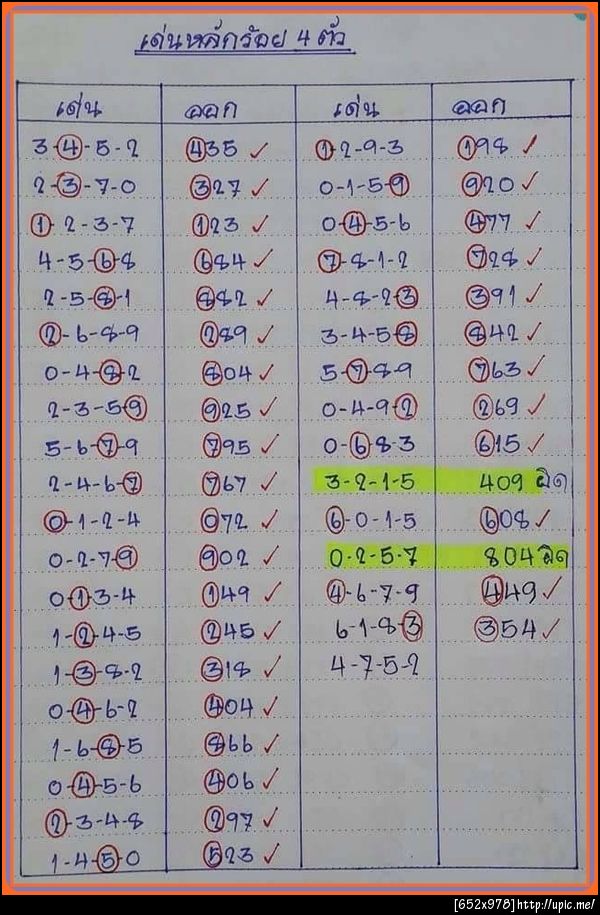 เด่นหลักร้อย 4 ตัว
เด่น ออก เด่น ออก
3-4-5-2 435 ✓ 1-2-9-3 198 ✓
2-3-7-0 327 ✓ 0-1-5-9 920 ✓
1-2-3-7 123 ✓ 0-4-5-6 477 ✓
4-5-6-8 684 ✓ 7-8-1-2 728 ✓
2-5-8-1 882 ✓ 4-8-2-3 391 ✓
2-6-8-9 289 ✓ 3-4-5-8 842 ✓
0-4-8-2 804 ✓ 5-7-8-9 763 ✓
2-3-5-9 925 ✓ 0-4-9-2 269 ✓
5-6-7-9 795 ✓ 0-6-8-3 615 ✓
2-4-6-7 767 ✓ 3-2-1-5 409 ผิด
0-1-2-4 072 ✓ 6-0-1-5 608 ✓
0-2-7-9 902 ✓ 0-2-5-7 804 ผิด
0-1-3-4 149 ✓ 4-6-7-9 449 ✓
1-2-4-5 245 ✓ 6-1-8-3 354 ✓
1-3-8-2 318 ✓ 4-7-5-2
0-4-6-2 404 ✓
1-6-8-5 866 ✓
0-4-5-6 406 ✓
2-3-4-8 297 ✓
1-4-5-0 523 ✓
[652x978] http://upic.me/